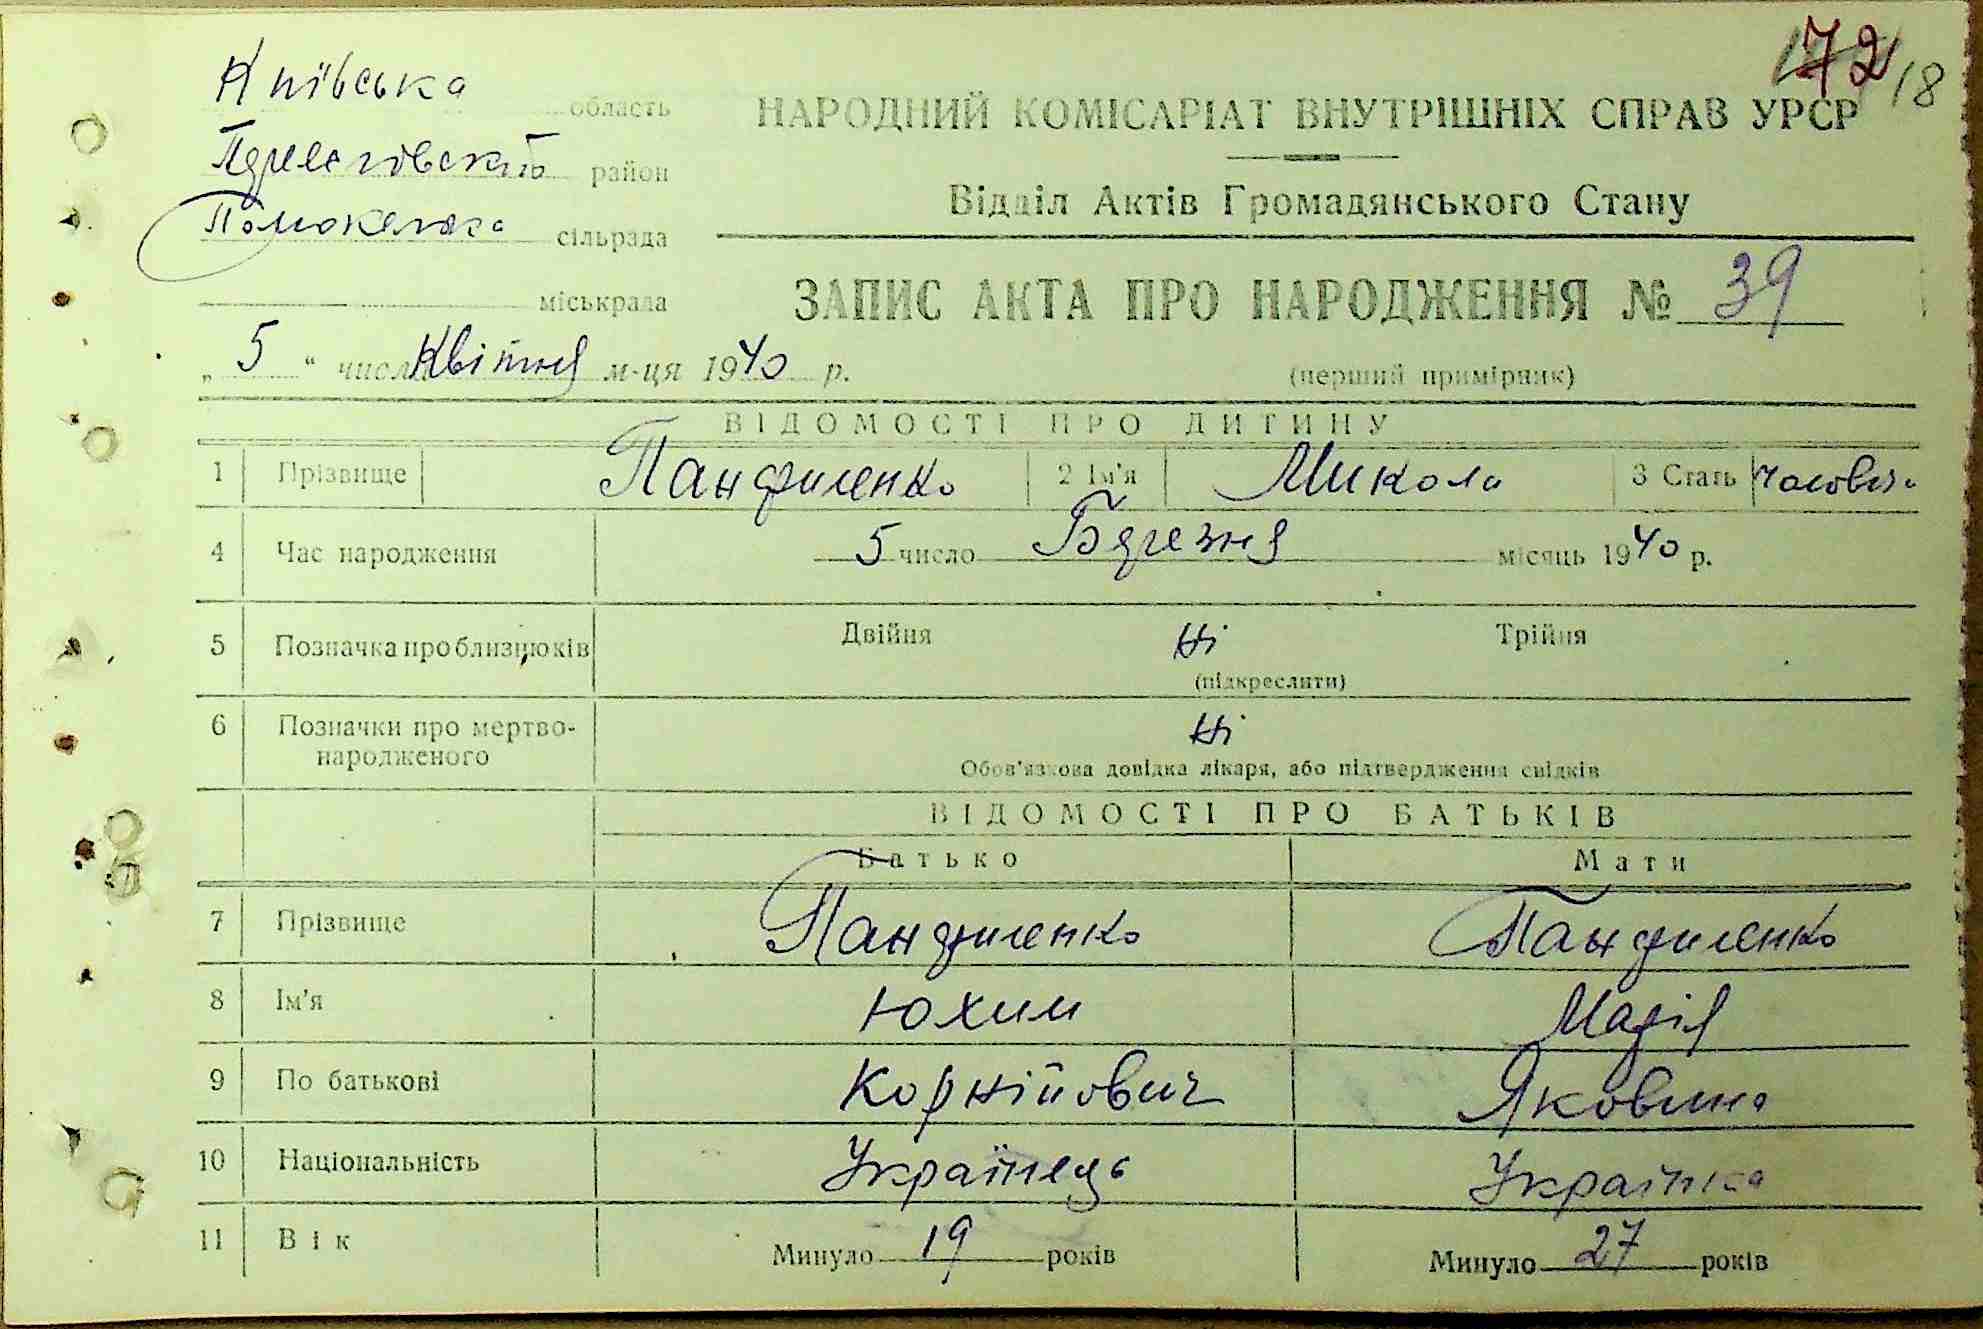 72 18
Київська область
район
сільрада
міськрада
НАРОДНИЙ КОМІСАРІАТ ВНУТРІШНІХ СПРАВ УРСР
Відділ Актів Громадянського Стану
ЗАПИС АКТА ПРО НАРОДЖЕННЯ № 39
„ 5 “ числа Квітня м-ця 1940 р.
(перший примірник)
ВІДОМОСТІ ПРО ДИТИНУ
1 Прізвище Панфиленко 2 Ім'я Микола 3 Стать
4 Час народження 5 число Березня місяць 1940 р.
5 Позначка про близнюків Двійня Ні Трійня
(підкреслити)
6 Позначки про мертво-
народженого Ні
Обов'язкова довідка лікаря, або підтвердження свідків
ВІДОМОСТІ ПРО БАТЬКІВ
Батько Мати
7 Прізвище Панфиленко Панфиленко
8 Ім'я Юхим Марія
9 По батькові Корнійович Яковина
10 Національність Українець Українка
11 Вік Минуло 19 років Минуло 27 років